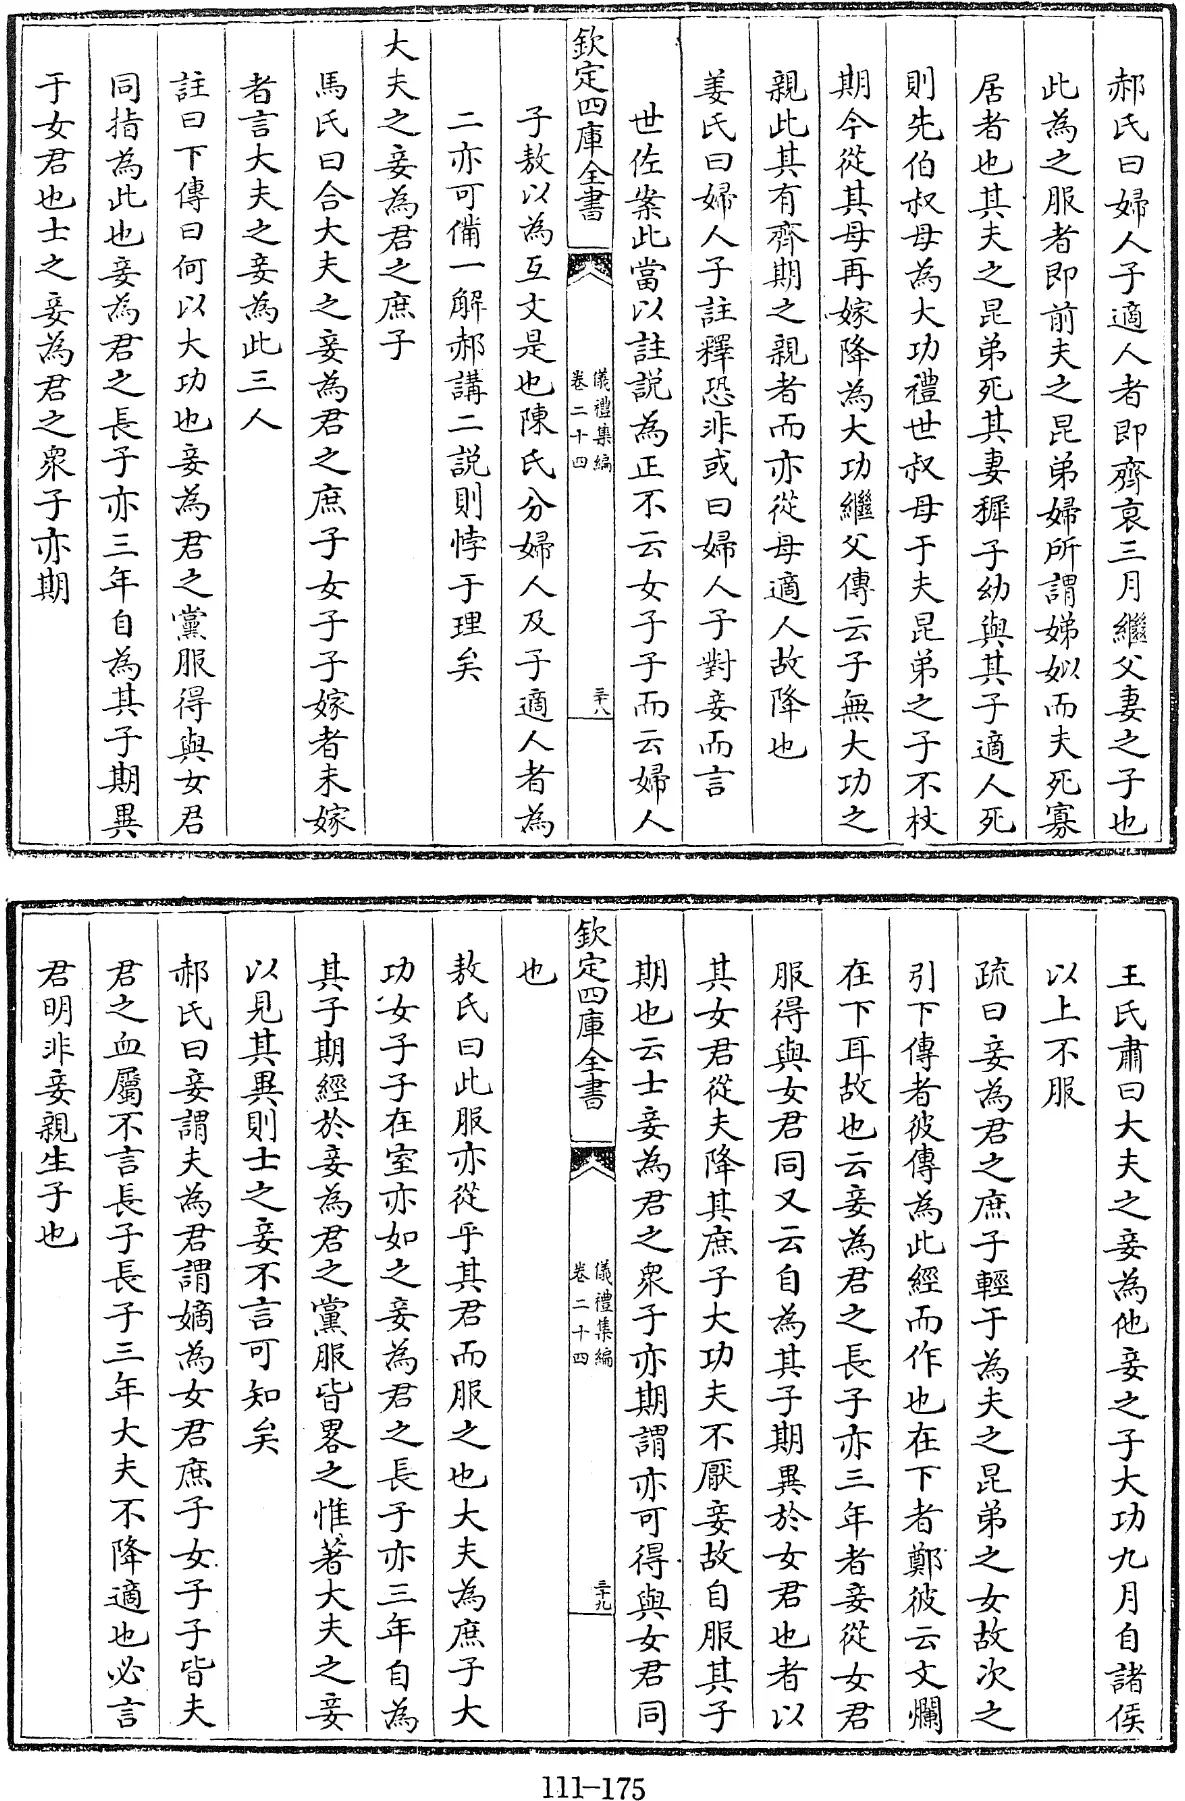 郝氏曰婦人子適人者即齊衰三月繼父妻之子也
此為之服者即前夫之昆弟婦所謂娣姒而夫死寡
居者也其夫之昆弟死其妻穉子幼與其子適人死
則先伯叔母為大功禮世叔母于夫昆弟之子不杖
期今從其母再嫁降為大功繼父傳云子無大功之
親此其有齊期之親者而亦從母適人故降也
姜氏曰婦人子註釋恐非或曰婦人子對妾而言
世佐案此當以註説為正不云女子子而云婦人
欽定四庫全書
儀禮集編
卷二十四
三十八
子敖以為互文是也陳氏分婦人及子適人者為
二亦可備一解郝講二説則悖于理矣
大夫之妾為君之庶子
馬氏曰合大夫之妾為君之庶子女子子嫁者未嫁
者言大夫之妾為此三人
註曰下傳曰何以大功也妾為君之黨服得與女君
同指為此也妾為君之長子亦三年自為其子期異
于女君也士之妾為君之衆子亦期
王氏肅曰大夫之妾為他妾之子大功九月自諸侯
以上不服
疏曰妾為君之庶子輕于為夫之昆弟之女故次之
引下傳者彼傳為此經而作也在下者鄭彼云文爛
在下耳故也云妾為君之長子亦三年者妾從女君
服得與女君同又云自為其子期異於女君也者以
其女君從夫降其庶子大功夫不厭妾故自服其子
期也云士妾為君之衆子亦期謂亦可得與女君同
欽定四庫全書
儀禮集編
卷二十四
三十九
也
敖氏曰此服亦從乎其君而服之也大夫為庶子大
功女子子在室亦如之妾為君之長子亦三年自為
其子期經於妾為君之黨服皆畧之惟著大夫之妾
以見其異則士之妾不言可知矣
郝氏曰妾謂夫為君謂嫡為女君庶子女子子皆夫
君之血屬不言長子長子三年大夫不降適也必言
君明非妾親生子也
111-175